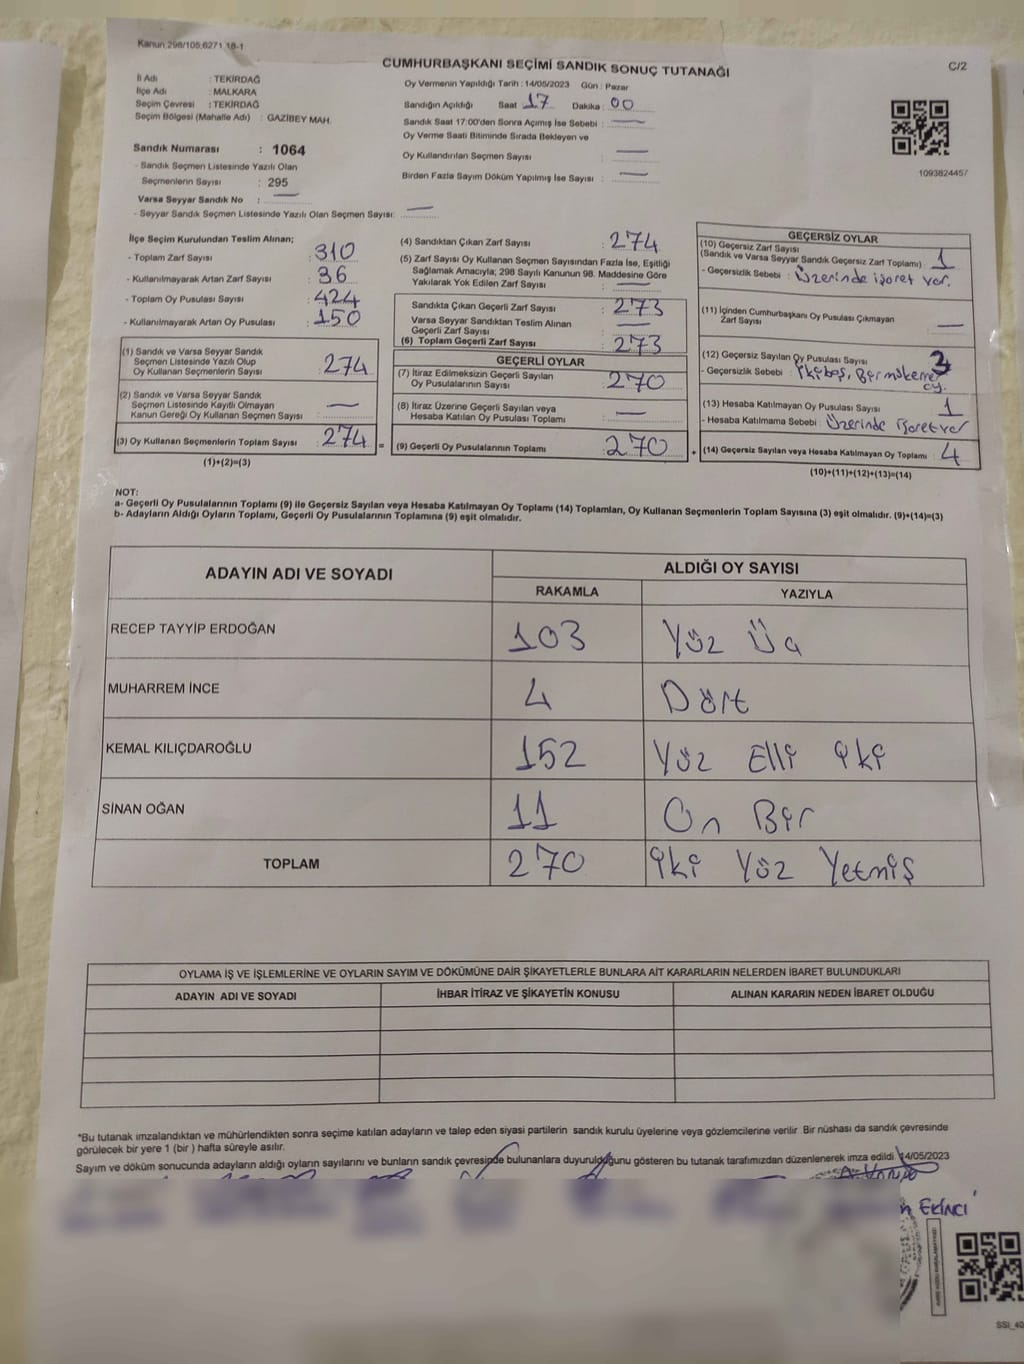 Kanun:298/105;6271,18-1
CUMHURBAŞKANI SEÇİMİ SANDIK SONUÇ TUTANAĞI
C/2
İl Adı : TEKİRDAĞ
İlçe Adı : MALKARA
Seçim Çevresi : TEKİRDAĞ
Seçim Bölgesi (Mahalle Adı) : GAZİBEY MAH.
Sandık Numarası : 1064
- Sandık Seçmen Listesinde Yazılı Olan
Seçmenlerin Sayısı : 295
Varsa Seyyar Sandık No : —
- Seyyar Sandık Seçmen Listesinde Yazılı Olan Seçmen Sayısı: —
Oy Vermenin Yapıldığı Tarih : 14/05/2023 Gün : Pazar
Sandığın Açıldığı Saat 17 Dakika : 00
Sandık Saat 17:00'den Sonra Açımış İse Sebebi : —
Oy Verme Saati Bitiminde Sırada Bekleyen ve
Oy Kullandırılan Seçmen Sayısı : —
Birden Fazla Sayım Döküm Yapılmış İse Sayısı : —
109382445/
İlçe Seçim Kurulundan Teslim Alınan;
- Toplam Zarf Sayısı : 310
- Kullanılmayarak Artan Zarf Sayısı : 36
- Toplam Oy Pusulası Sayısı : 424
- Kullanılmayarak Artan Oy Pusulası : 150
(1) Sandık ve Varsa Seyyar Sandık
Seçmen Listesinde Yazılı Olup
Oy Kullanan Seçmenlerin Sayısı : 274
(2) Sandık ve Varsa Seyyar Sandık
Seçmen Listesinde Kayıtlı Olmayan
Kanun Gereği Oy Kullanan Seçmen Sayısı : —
(3) Oy Kullanan Seçmenlerin Toplam Sayısı : 274 =
(1)+(2)=(3)
(4) Sandıktan Çıkan Zarf Sayısı : 274
(5) Zarf Sayısı Oy Kullanan Seçmen Sayısından Fazla İse, Eşitliği
Sağlamak Amacıyla; 298 Sayılı Kanunun 98. Maddesine Göre
Yakılarak Yok Edilen Zarf Sayısı : —
Sandıkta Çıkan Geçerli Zarf Sayısı : 273
Varsa Seyyar Sandıktan Teslim Alınan
Geçerli Zarf Sayısı : —
(6) Toplam Geçerli Zarf Sayısı : 273
GEÇERLİ OYLAR
(7) İtiraz Edilmeksizin Geçerli Sayılan
Oy Pusulalarının Sayısı : 270
(8) İtiraz Üzerine Geçerli Sayılan veya
Hesaba Katılan Oy Pusulası Toplamı : —
(9) Geçerli Oy Pusulalarının Toplamı : 270 +
GEÇERSİZ OYLAR
(10) Geçersiz Zarf Sayısı
(Sandık ve Varsa Seyyar Sandık Geçersiz Zarf Toplamı) : 1
- Geçersizlik Sebebi : Üzerinde işaret var.
(11) İçinden Cumhurbaşkanı Oy Pusulası Çıkmayan
Zarf Sayısı : —
(12) Geçersiz Sayılan Oy Pusulası Sayısı
- Geçersizlik Sebebi : İki boş, Bir mükerrer
oy.
(13) Hesaba Katılmayan Oy Pusulası Sayısı : 1
- Hesaba Katılmama Sebebi : Üzerinde işaret var
(14) Geçersiz Sayılan veya Hesaba Katılmayan Oy Toplamı : 4
(10)+(11)+(12)+(13)=(14)
NOT:
a- Geçerli Oy Pusulalarının Toplamı (9) ile Geçersiz Sayılan veya Hesaba Katılmayan Oy Toplamı (14) Toplamları, Oy Kullanan Seçmenlerin Toplam Sayısına (3) eşit olmalıdır. (9)+(14)=(3)
b- Adayların Aldığı Oyların Toplamı, Geçerli Oy Pusulalarının Toplamına (9) eşit olmalıdır.
ADAYIN ADI VE SOYADI
ALDIĞI OY SAYISI
RAKAMLA YAZIYLA
RECEP TAYYİP ERDOĞAN 103 Yüz Üç
MUHARREM İNCE 4 Dört
KEMAL KILIÇDAROĞLU 152 Yüz Elli iki
SİNAN OĞAN 11 On Bir
TOPLAM 270 iki Yüz Yetmiş
OYLAMA İŞ VE İŞLEMLERİNE VE OYLARIN SAYIM VE DÖKÜMÜNE DAİR ŞİKAYETLERLE BUNLARA AİT KARARLARIN NELERDEN İBARET BULUNDUKLARI
ADAYIN ADI VE SOYADI İHBAR İTİRAZ VE ŞİKAYETİN KONUSU ALINAN KARARIN NEDEN İBARET OLDUĞU
*Bu tutanak imzalandıktan ve mühürlendikten sonra seçime katılan adayların ve talep eden siyasi partilerin sandık kurulu üyelerine veya gözlemcilerine verilir Bir nüshası da sandık çevresinde
görülecek bir yere 1 (bir ) hafta süreyle asılır.
Sayım ve döküm sonucunda adayların aldığı oyların sayılarını ve bunların sandık çevresinde bulunanlara duyurulduğunu gösteren bu tutanak tarafımızdan düzenlenerek imza edildi 14/05/2023
EKİNCİ
SSI_40